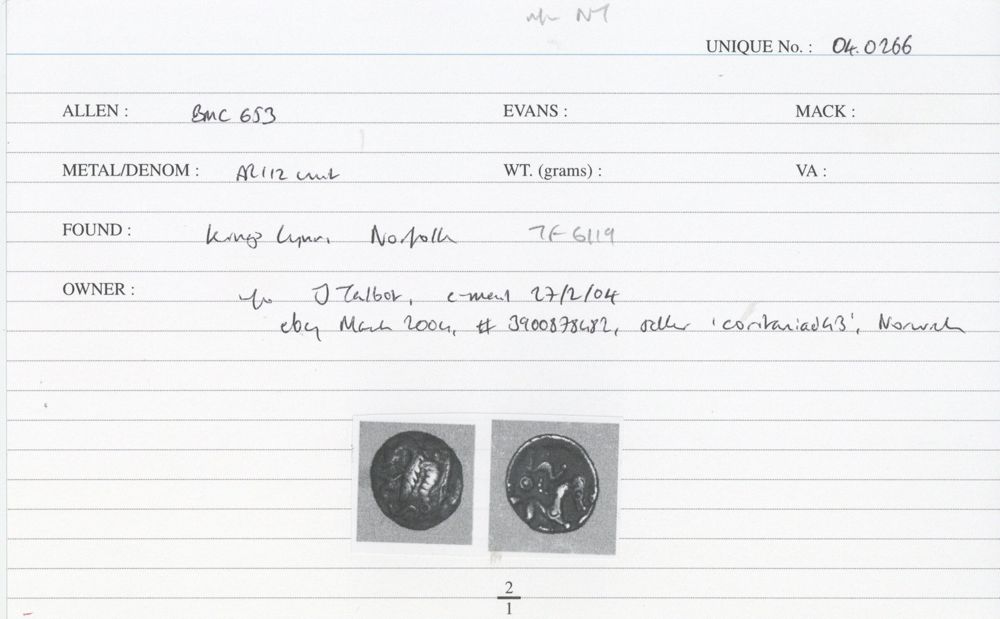 NT
UNIQUE No. : 04.0266
ALLEN : BMC 653 EVANS : MACK :
METAL/DENOM : AR 1/2 unit WT. (grams) : VA :
FOUND : Kings Lynn, Norfolk TF 6119
OWNER : J Talbot, e-mail 27/2/04
ebay March 2004, # 3900878482, seller 'coritaniad43', Norwich
2
1